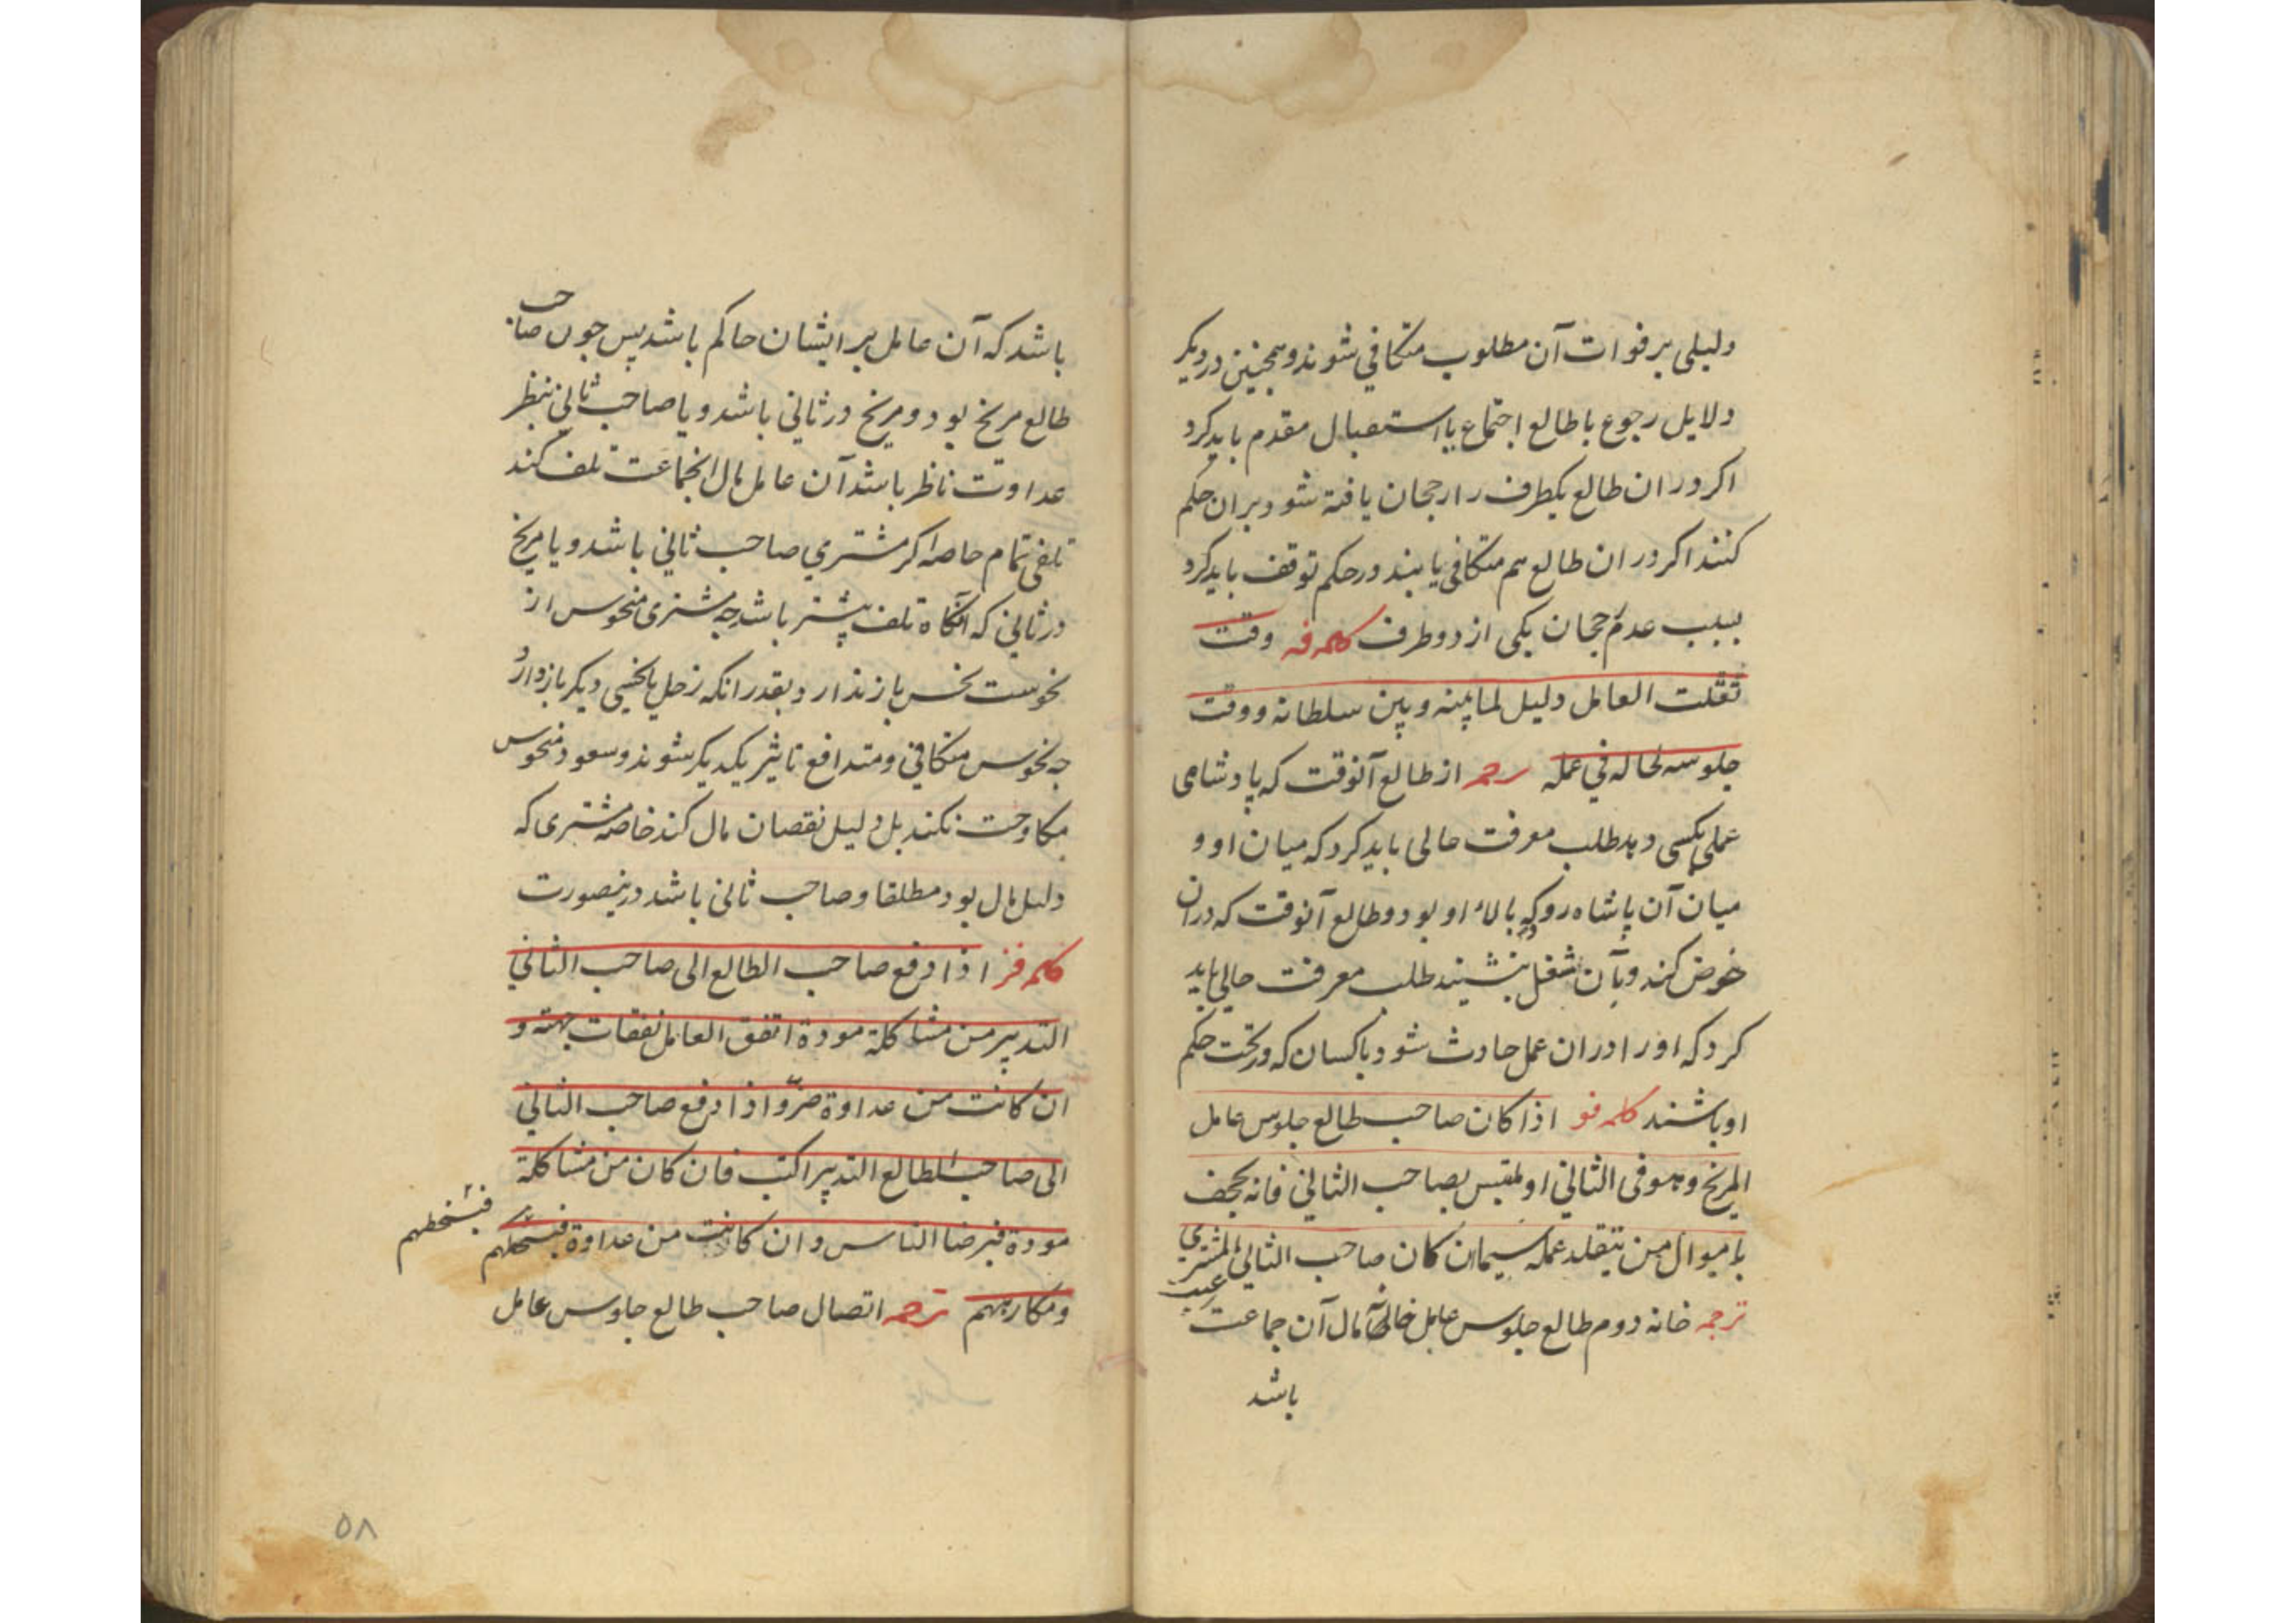 دلیلی بر فوات آن مطلوب متکافی شوند و همچنین در دیکر
دلایل رجوع با طالع اجتماع یا استقبال مقدم باید کرد
اکر در ان طالع یکطرف را رجحان یافته شود بران حکم
کنند اکر در ان طالع هم متکافی یابند در حکم توقف باید کرد
بسبب عدم رجحان یکی از دو طرف کلمه فه وقت
تقلت العامل دلیل لما بینه و بین سلطانه و وقت
جلوسه لحاله فی عمله ترجمه از طالع آنوقت که پادشاهی
عملی بکسی دهد طلب معرفت حالی باید کرد که میان او و
میان آن پاشاه رو که بالاء او بود و طالع آنوقت که دران
خوض کند و بآن شغل بنشیند طلب معرفت حالی باید
کرد که او را دران عمل حادث شود باکسان که در تحت حکم
او باشند کلمه فو اذا کان صاحب طالع جلوس عامل
المریخ و هو فی الثانی او لمقبس بصاحب الثانی فانه یجحف
بامیوال من یتقلد عمله سیمان کان صاحب الثانی المشتری
ترجمه خانه دوم طالع جلوس عامل خانه مال آن جماعت رعیت
باشد
باشد که آن عامل بر ایشان حاکم باشد پس چون صاحب
طالع مریخ بود و مریخ در ثانی باشد و یا صاحب ثانی بنظر
عداوت ناظر باشد آن عامل مال انجماعت تلف کند
تلفی تمام خاصه اکر مشتری صاحب ثانی باشد و یا مریخ
در ثانی که آنکاه تلف بیشتر باشد چه مشتری منحوس از
نحوست نحس باز ندارد بقدر انکه زحل یا نحسی دیکر باز دارد
چه نحوس متکافی و متدافع تاثیر یکدیکر شوند و سعود منحوس
مکاوحت نکند بل دلیل نقصان مال کند خاصه مشتری که
دلیل مال بود مطلقا و صاحب ثانی باشد درینصورت
کلمه فز اذا دفع صاحب الطالع الی صاحب الثانی
التدبیر من مشاکلة مودة اتفق العامل نفقات جهته و
ان کانت من عداوة ضرّ و اذا دفع صاحب الثانی
الی صاحب لطالع التدبیر اکتب فان کان من مشاکلة
مودة فبرضا الناس و ان کانت من عداوة فبسخطهم
فبسخطهم
و مکارههم ترجمه اتصال صاحب طالع جلوس عامل
۵۸